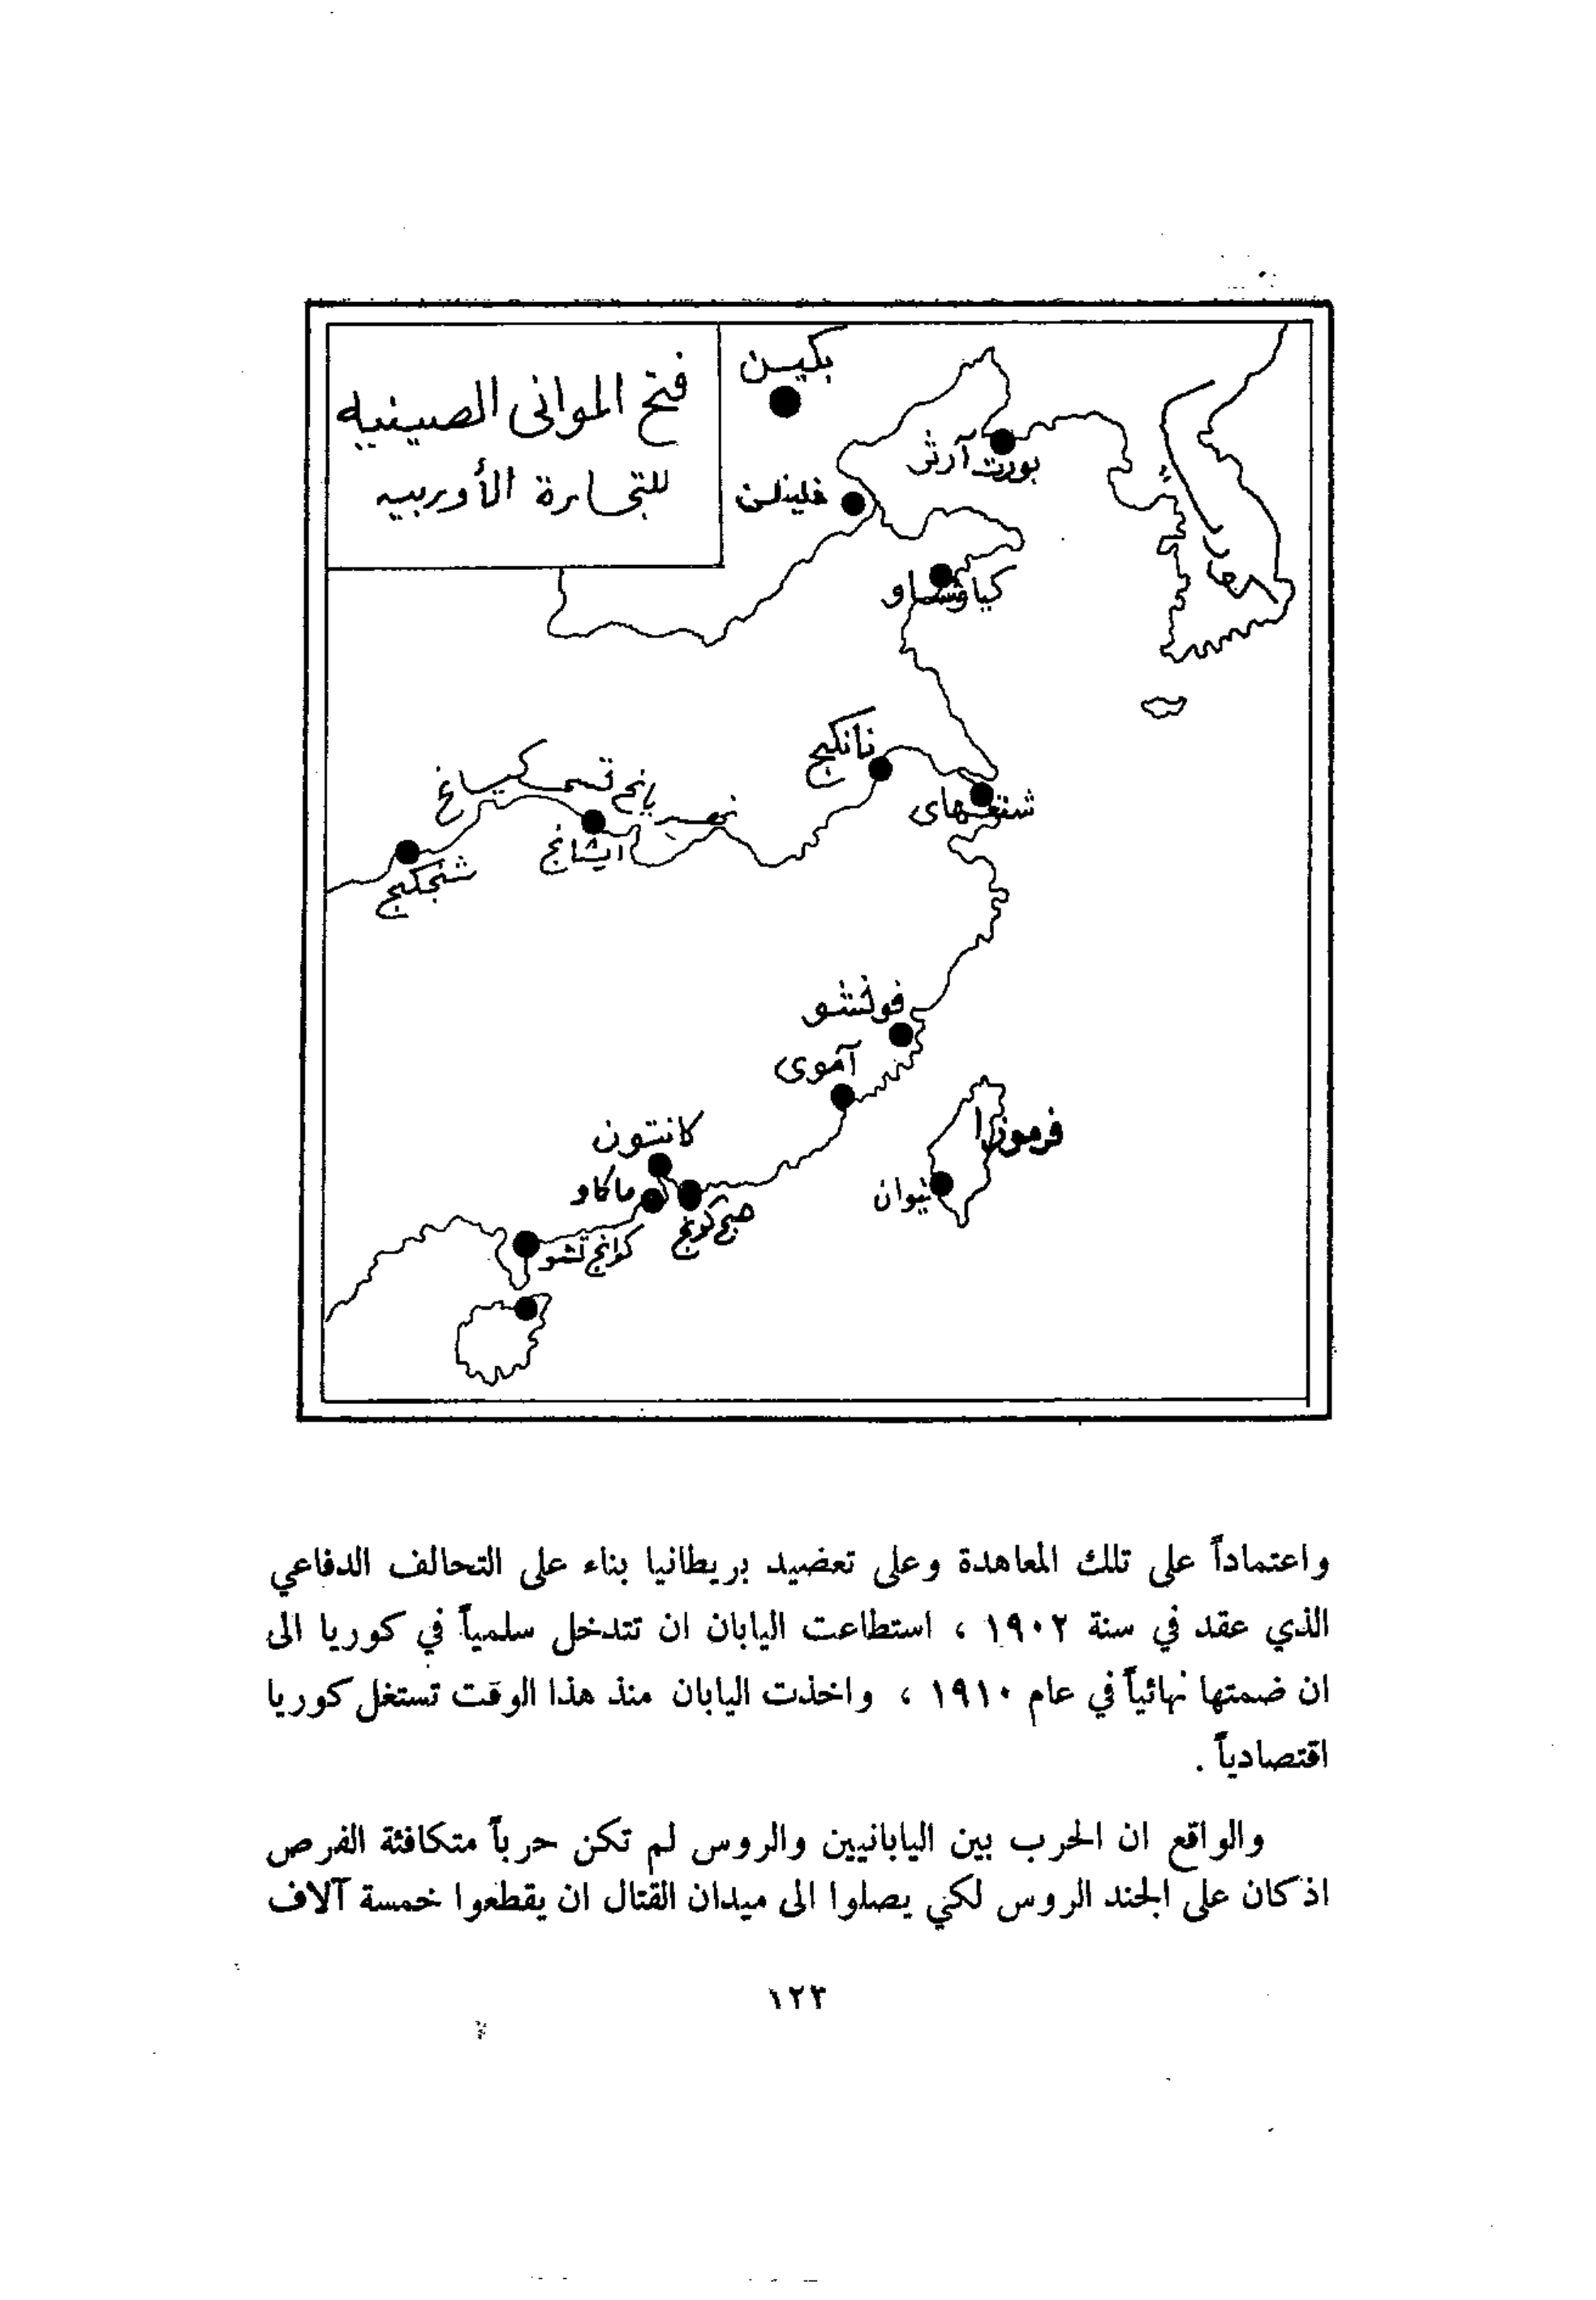 فتح الموانى الصينيه
للتجارة الأوربيه
بكين
بورت آرثر
كياوتشاو
كوريا
نانكنج
شنغهاى
نهر يانج تسى كياغ
ايشانج
شنجكنج
فوتشو
آموى
كانتون
ماكاو
هنج كونج
كوانج تشو
فرموزا
تيوان
واعتماداً على تلك المعاهدة وعلى تعضيد بريطانيا بناء على التحالف الدفاعي
الذي عقد في سنة ١٩٠٢ ، استطاعت اليابان ان تتدخل سلمياً في كوريا الى
ان ضمتها نهائياً في عام ١٩١٠ ، واخذت اليابان منذ هذا الوقت تستغل كوريا
اقتصادياً .
والواقع ان الحرب بين اليابانيين والروس لم تكن حرباً متكافئة الفرص
اذ كان على الجند الروس لكي يصلوا الى ميدان القتال ان يقطعوا خمسة آلاف
١٢٣